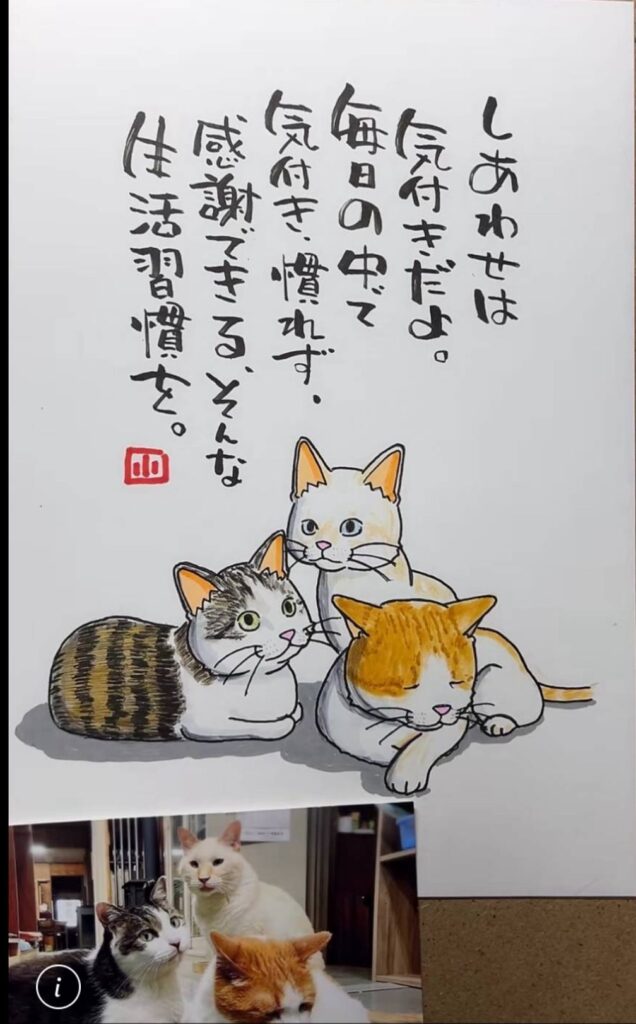 しあわせは
気付きだよ。
毎日の中で
気付き、慣れず、
感謝できる、そんな
生活習慣を。
小
i